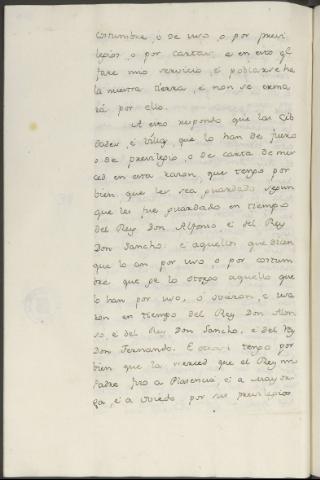 costumbre, o de uso, o por previ-
legios, o por cartas, e en esto q̃l
fare mio servicio, e poblarseha
la nuestra tierra, e non se erma
rá por ello.
A esto respondo que las Cib
dades, e Villas que lo han de fuero
o de previlegio, o de carta de mer
ced en esta razon, que tengo por
bien que les sea guardado segun
que les fue guardado en tiempo
del Rey Don Alfonso e del Rey
Don Sancho: e aquellos que dicen
que lo an por uso, o por costum
bre, que ge lo otorgo aquello que
lo han por uso, o ovieron, e usa
ron en tiempo del Rey Don Alon
so, e del Rey Don Sancho, e del Rey
Don Fernando. E otrosi tengo por
bien que la merced que el Rey mio
Padre fizo a Plasencia, e a Mayor
ga, e a Oviedo por sus previlegios